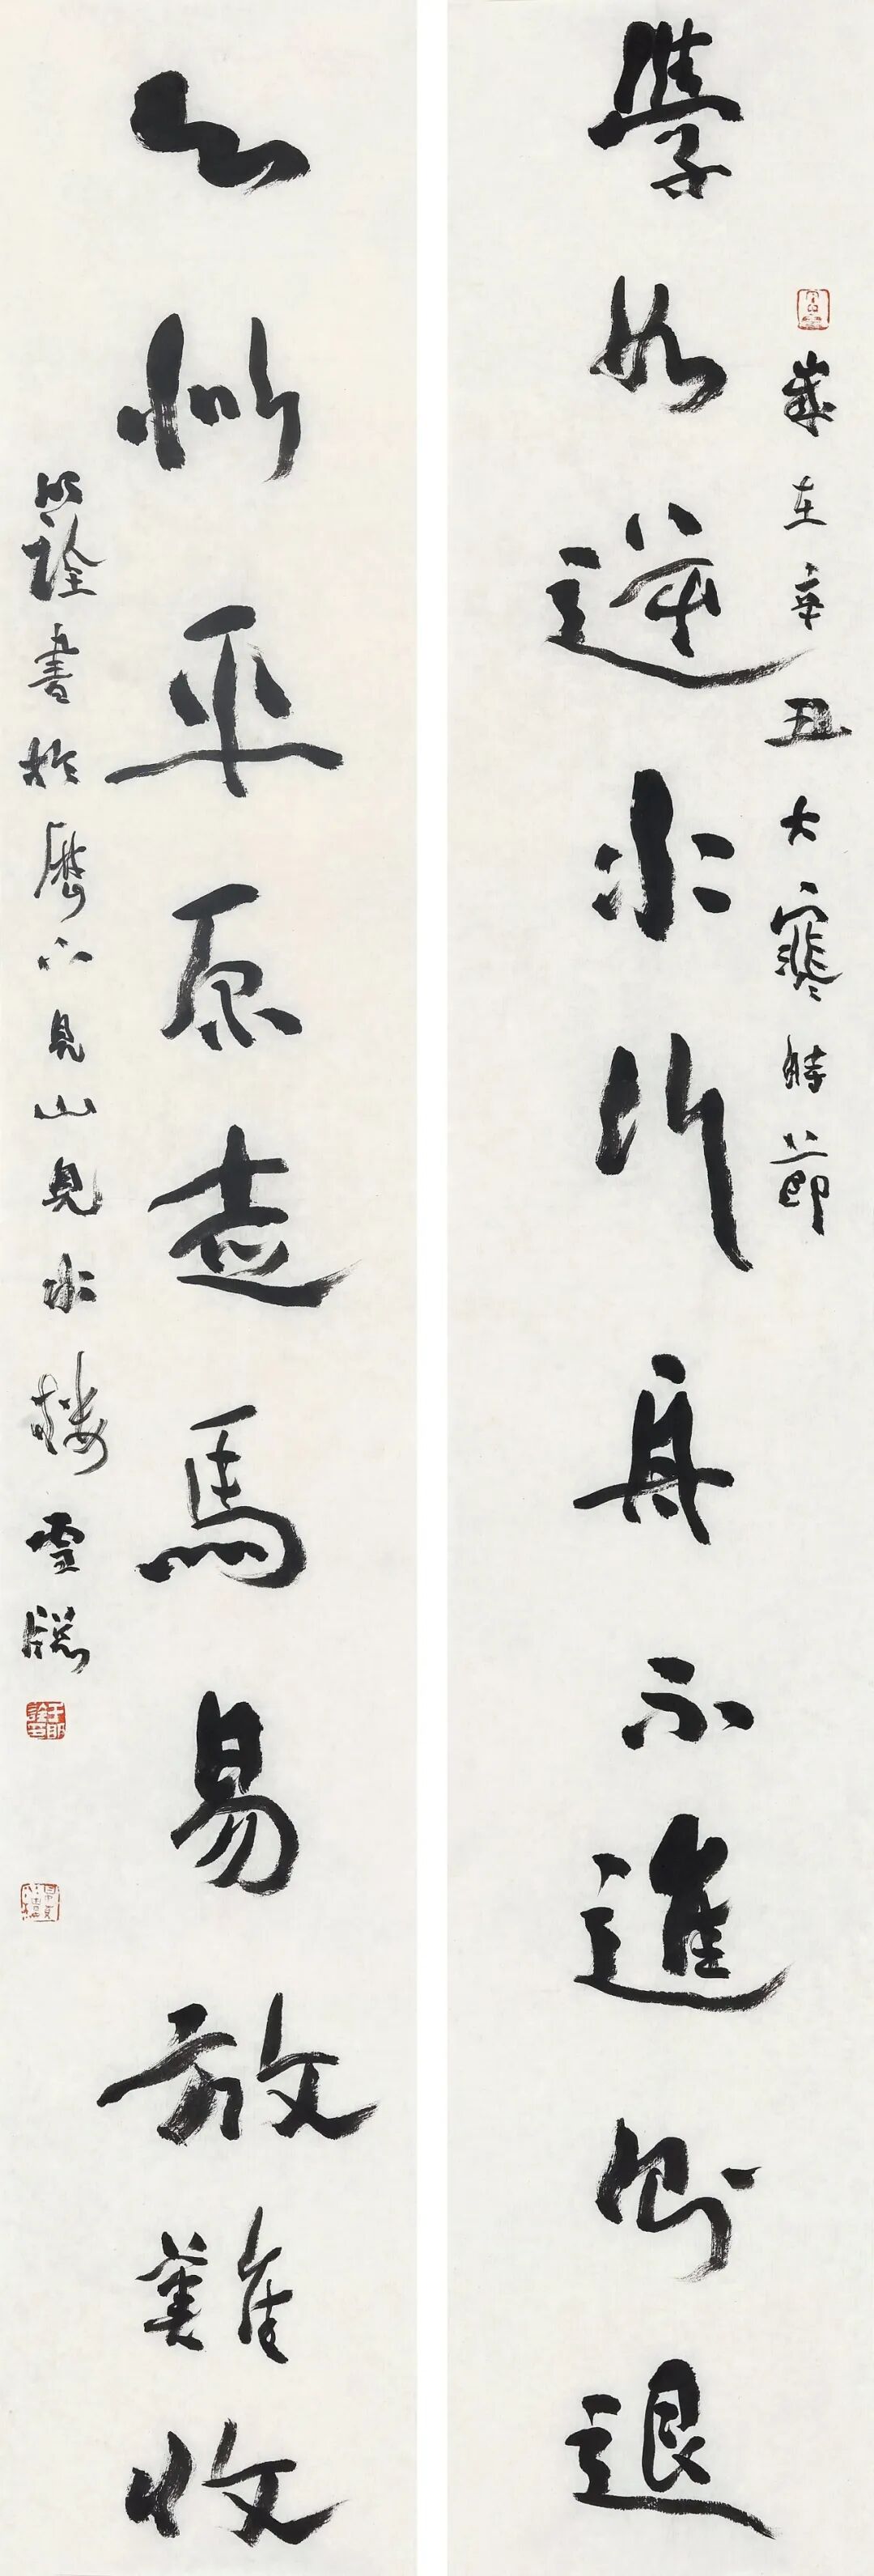 歲在辛丑大寒時節
學如逆水行舟不進則退
心似平原走馬易放難收
明詮書於歷下見山見水樓雪牕
于明詮印